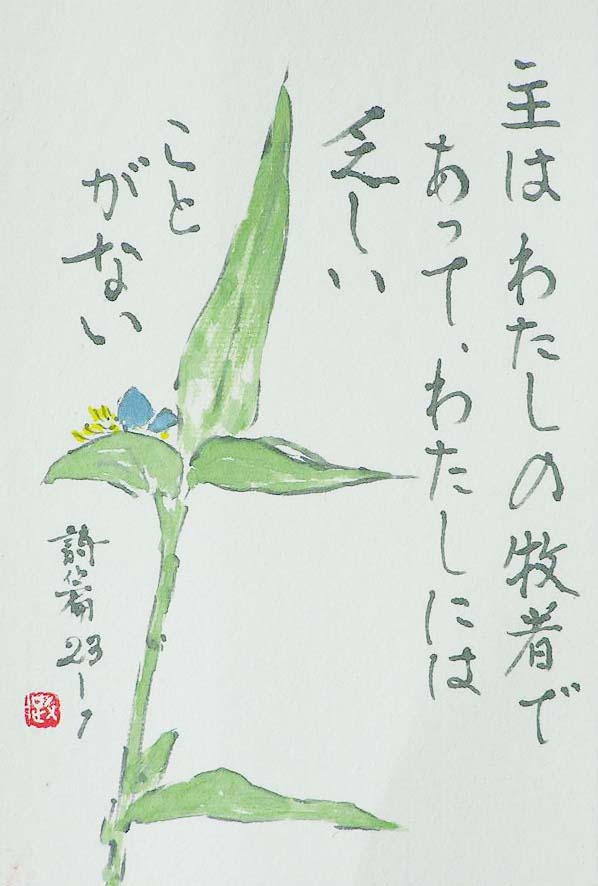 主は わたしの牧者で
あって、わたしには
乏しい
こと
がない
詩篇 23-1